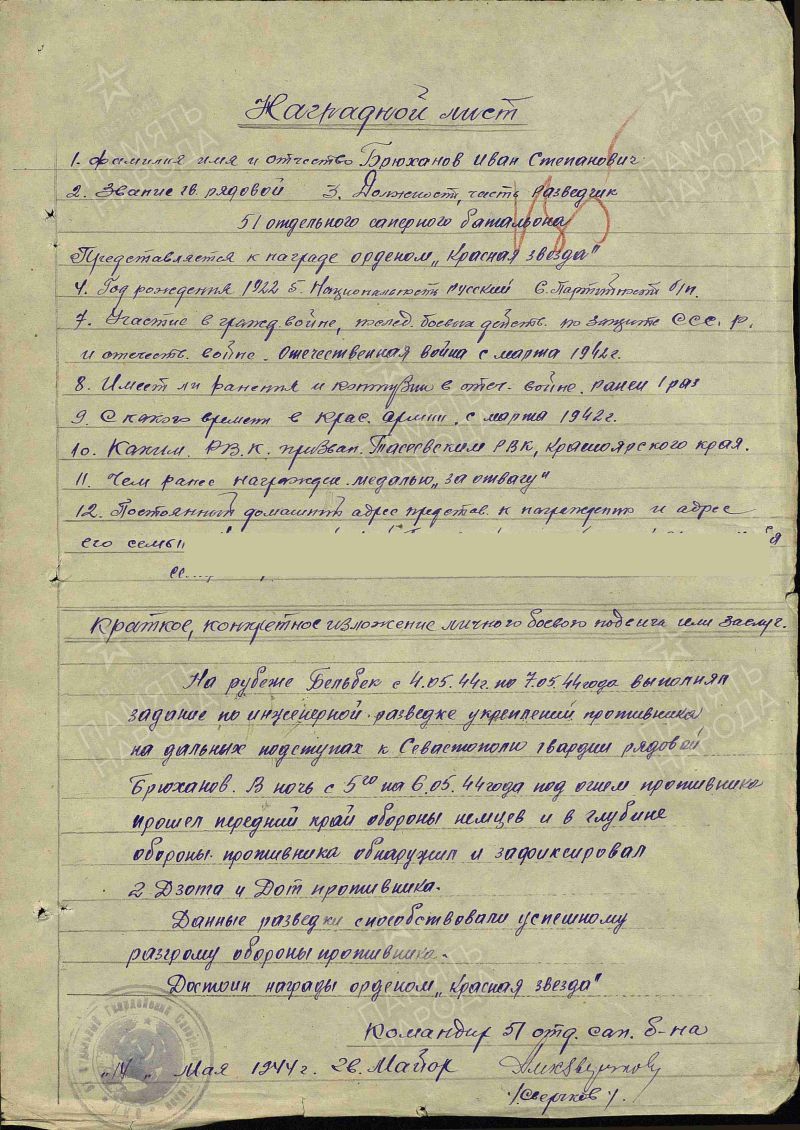 Наградной лист
1. Фамилия имя и отчество Брюханов Иван Степанович
2. Звание гв. рядовой 3. Должность, часть разведчик
51 отдельного саперного батальона
Представляется к награде орденом „Красная звезда"
4. Год рождения 1922 5. Национальность русский 6. Партийность б/п.
7. Участие в гражд. войне, послед. боевых действ. по защите СССР.
и отечеств. войне. Отечественная война с марта 1942 г.
8. Имеет ли ранения и контузии в отеч. войне. ранен 1 раз
9. С какого времени в Крас. армии. с марта 1942 г.
10. Каким Р.В.К. призван. Тасеевским РВК, Красноярского края.
11. Чем ранее награжден. медалью „За отвагу"
12. Постоянный домашний адрес представ. к награждению и адрес
его семьи
Краткое, конкретное изложение личного боевого подвига или заслуг.
На рубеже Бельбек с 4.05.44 г. по 7.05.44 года выполнял
задание по инженерной разведке укреплений противника
на дальных подступах к Севастополю гвардии рядовой
Брюханов. В ночь с 5го на 6.05.44 года под огнем противника
прошел передний край обороны немцев и в глубине
обороны противника обнаружил и зафиксировал
2 Дзота и Дот противника.
Данные разведки способствовали успешному
разгрому обороны противника.
Достоин награды орденом „Красная звезда"
Командир 51 отд. сап. б-на
„14" Мая 1944 г. Гв. Майор
ПАМЯТЬ НАРОДА